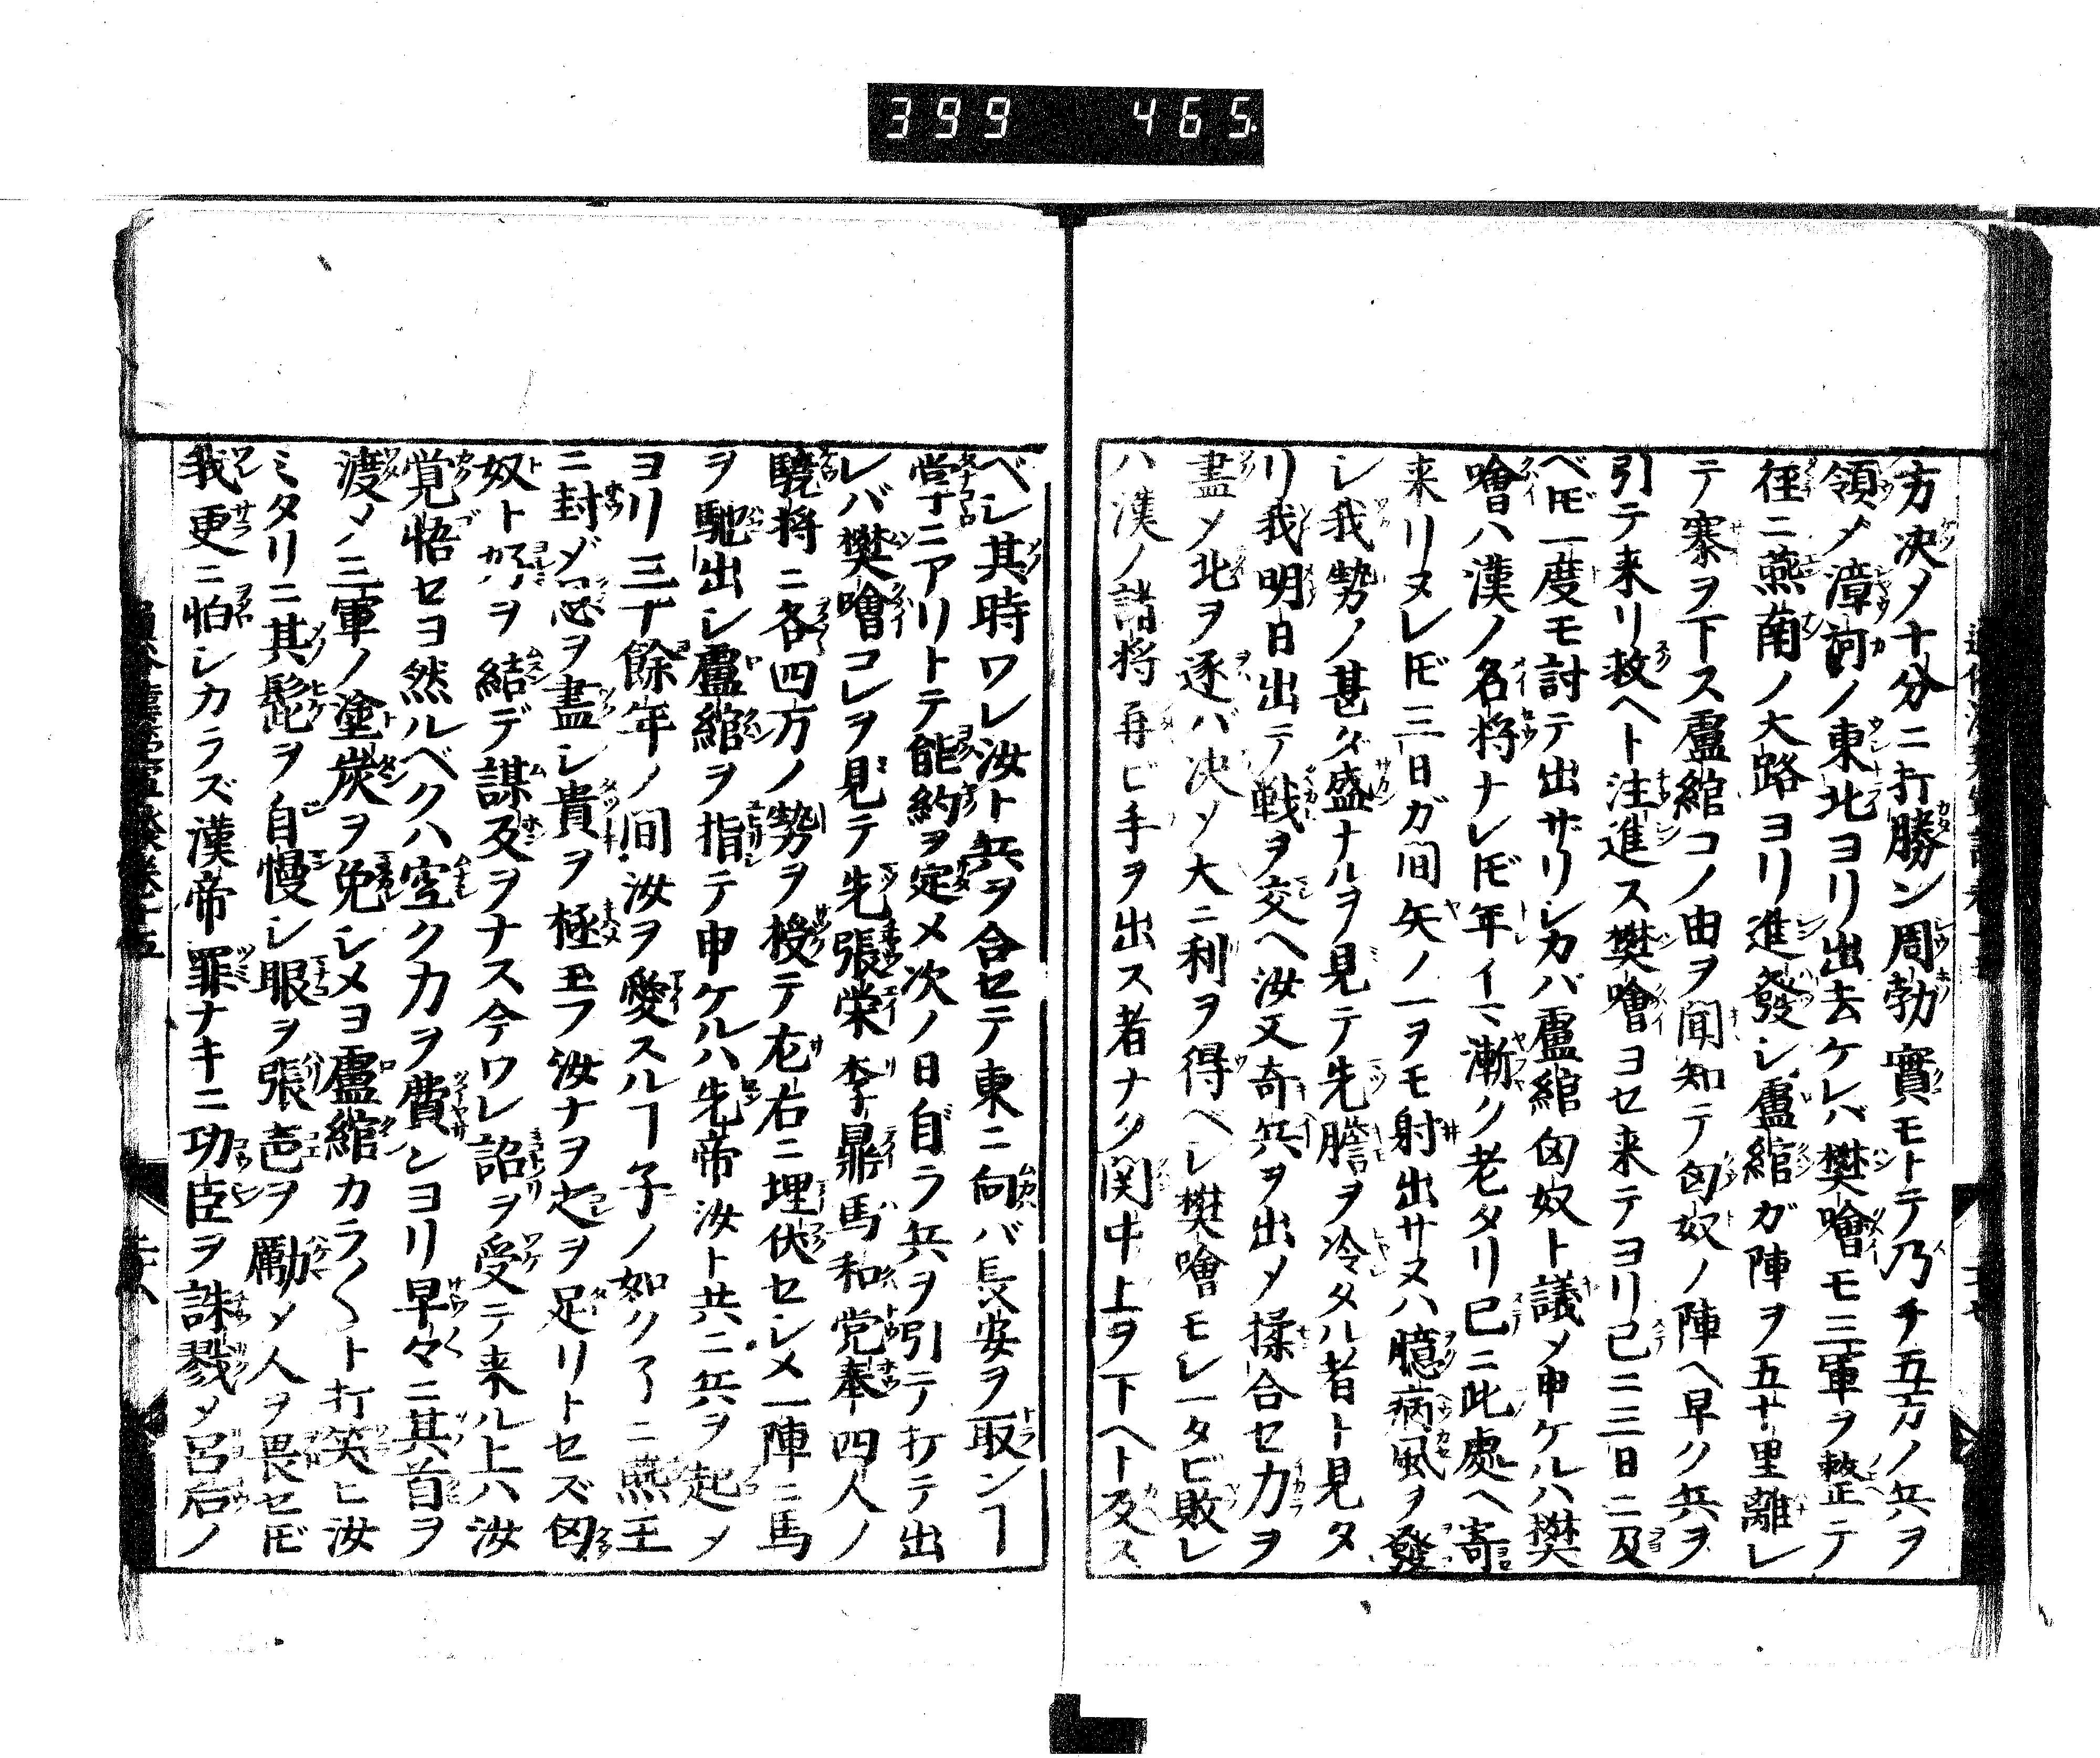 399 465
方决〆十分ニ打勝ン周勃實モトテ乃チ五万ノ兵ヲ
領〆漳河ノ東北ヨリ出去ケレバ樊噲モ三軍ヲ整テ
径ニ燕南ノ大路ヨリ進發シ盧綰ガ陣ヲ五十里離レ
テ寨ヲ下ス盧綰コノ由ヲ聞知テ匈奴ノ陣ヘ早ク兵ヲ
引テ来リ救ヘト注進ス樊噲ヨセ来テヨリ已ニ三日ニ及
ベ𪜈一度モ討テ出ザリシカバ盧綰匈奴ト議〆申ケルハ樊
噲ハ漢ノ名将ナレ𪜈年イマ漸ク老タリ已ニ此處ヘ寄
来リヌレ𪜈三日ガ間矢ノ一ヲモ射出サヌハ臆病風ヲ發
シ我勢ノ甚タ盛ナルヲ見テ先膽ヲ冷タル者ト見タ
リ我明日出テ戦ヲ交ヘ汝又奇兵ヲ出〆揉合セ力ヲ
盡〆北ヲ逐バ决〆大ニ利ヲ得ベシ樊噲モシ一タビ敗レ
バ漢ノ諸将再ビ手ヲ出ス者ナク関中上ヲ下ヘト反ス
ベシ其時ワレ汝ト兵ヲ合セテ東ニ向バ長安ヲ取ンヿ
掌ニアリトテ能約ヲ定メ次ノ日自ラ兵ヲ引テ打テ出
レバ樊噲コレヲ見テ先張栄李鼎馬和党奉四人ノ
驍将ニ各四方ノ勢ヲ授テ左右ニ埋伏セシメ一陣ニ馬
ヲ馳出シ盧綰ヲ指テ申ケルハ先帝汝ト共ニ兵ヲ起〆
ヨリ三十餘年ノ間汝ヲ愛スルヿ子ノ如ク了ニ燕王
ニ封ゾ恣ヲ盡シ貴ヲ極玉フ汝ナヲ之ヲ足リトセズ匈
奴ト好ヲ結デ謀反ヲナス今ワレ詔ヲ受テ来ル上ハ汝
覚悟セヨ然ルベクハ空ク力ヲ費ンヨリ早々ニ其首ヲ
渡〆三軍ノ塗炭ヲ免レメヨ盧綰カラ〱ト打笑ヒ汝
ミタリニ其髭ヲ自慢シ眼ヲ張声ヲ勵〆人ヲ畏セ𪜈
我更ニ怕シカラズ漢帝罪ナキニ功臣ヲ誅戮〆呂后ノ